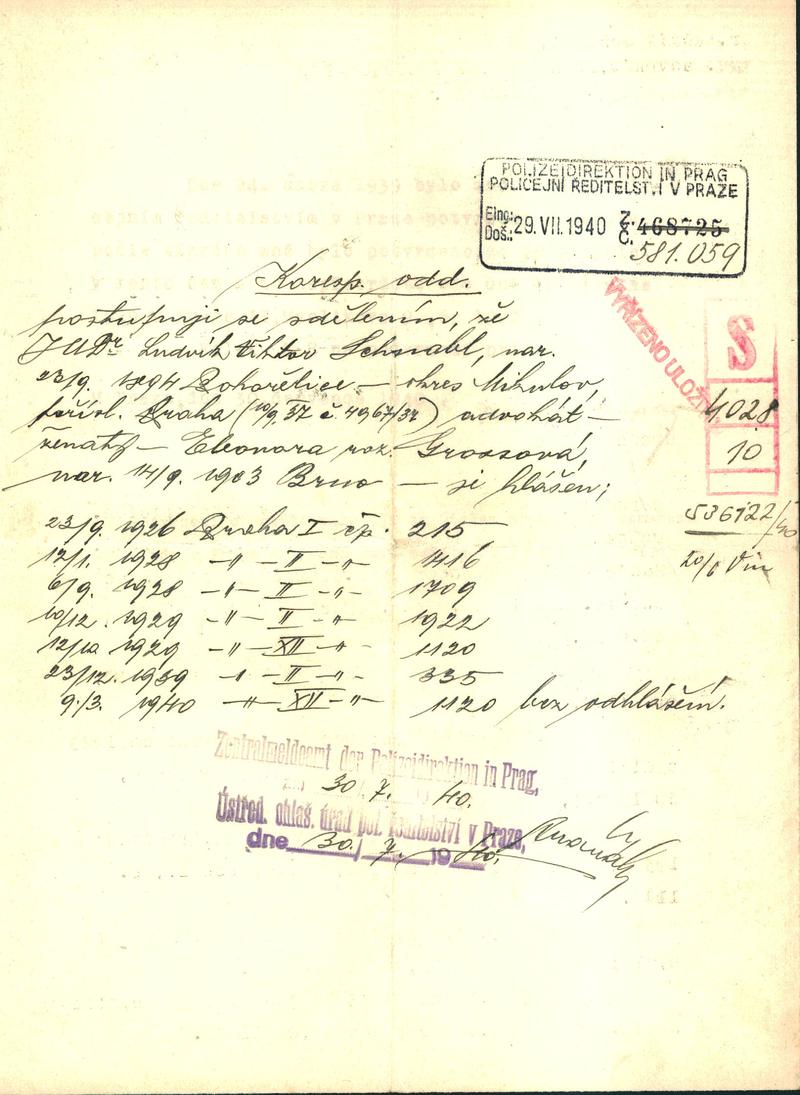 POLIZEIDIREKTION IN PRAG
POLICEJNÍ ŘEDITELSTVÍ V PRAZE
Eing.: Doš.: 29.VII.1940 Z. Č. 468725
581.059
Koresp. odd.
postupuji se sdělením, že
JUDr Ludvík Viktor Schnabl, nar.
23/9. 1894 Pohořelice – okres Mikulov,
přísl. Praha (10/9.37 č 4967/37) advokát –
ženatý – Eleonora roz. Grossová,
nar. 14/9. 1903 Brno – si hlášen;
23/9. 1926 Praha I čp. 215
12/1. 1928 –"– II –"– 1416
6/9. 1928 –"– II –"– 1709
10/12. 1929 –"– II –"– 1922
12/12 1929 –"– XII –"– 1120
23/12. 1939 –"– II –"– 335
9./3. 1940 –"– XII –"– 1120 bez odhlášení.
VYŘÍZENO ULOŽIT
S
4028
10
536122/40
20/6
Zentralmeldeamt der Polizeidirektion in Prag,
30. 7. 40.
Ústřed. ohlaš. úřad pol. ředitelství v Praze,
dne 30. / 7. 1940.